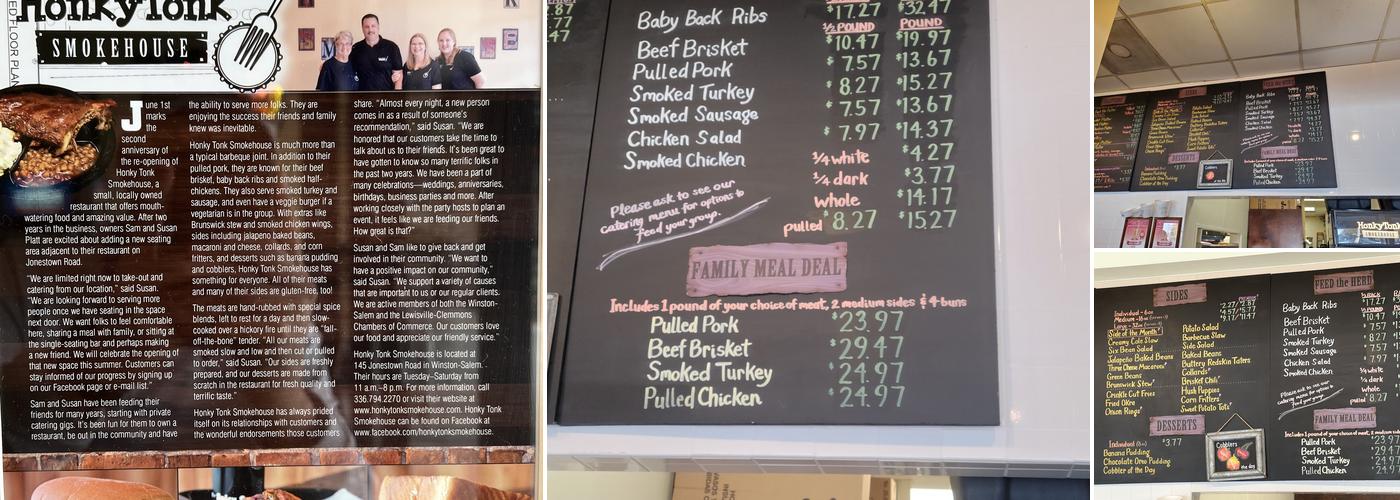 HonkyTonk
SMOKEHOUSE
June 1st
marks
the
second
anniversary of
the re-opening of
Honky Tonk
Smokehouse, a
small, locally owned
restaurant that offers mouth-
watering food and amazing value. After two
years in the business, owners Sam and Susan
Platt are excited about adding a new seating
area adjacent to their restaurant on
Jonestown Road.
"We are limited right now to take-out and
catering from our location," said Susan.
"We are looking forward to serving more
people once we have seating in the space
next door. We want folks to feel comfortable
here, sharing a meal with family, or sitting at
the single-seating bar and perhaps making
a new friend. We will celebrate the opening of
that new space this summer. Customers can
stay informed of our progress by signing up
on our Facebook page or e-mail list."
Sam and Susan have been feeding their
friends for many years, starting with private
catering gigs. It's been fun for them to own a
restaurant, be out in the community and have
the ability to serve more folks. They are
enjoying the success their friends and family
knew was inevitable.
Honky Tonk Smokehouse is much more than
a typical barbeque joint. In addition to their
pulled pork, they are known for their beef
brisket, baby back ribs and smoked half-
chickens. They also serve smoked turkey and
sausage, and even have a veggie burger if a
vegetarian is in the group. With extras like
Brunswick stew and smoked chicken wings,
sides including jalapeno baked beans,
macaroni and cheese, collards, and corn
fritters, and desserts such as banana pudding
and cobblers, Honky Tonk Smokehouse has
something for everyone. All of their meats
and many of their sides are gluten-free, too!
The meats are hand-rubbed with special spice
blends, left to rest for a day and then slow-
cooked over a hickory fire until they are "fall-
off-the-bone" tender. "All our meats are
smoked slow and low and then cut or pulled
to order," said Susan. "Our sides are freshly
prepared, and our desserts are made from
scratch in the restaurant for fresh quality and
terrific taste."
Honky Tonk Smokehouse has always prided
itself on its relationships with customers and
the wonderful endorsements those customers
share. "Almost every night, a new person
comes in as a result of someone's
recommendation," said Susan. "We are
honored that our customers take the time to
talk about us to their friends. It's been great to
have gotten to know so many terrific folks in
the past two years. We have been a part of
many celebrations—weddings, anniversaries,
birthdays, business parties and more. After
working closely with the party hosts to plan an
event, it feels like we are feeding our friends.
How great is that?"
Susan and Sam like to give back and get
involved in their community. "We want to
have a positive impact on our community,"
said Susan. "We support a variety of causes
that are important to us or our regular clients.
We are active members of both the Winston-
Salem and the Lewisville-Clemmons
Chambers of Commerce. Our customers love
our food and appreciate our friendly service."
Honky Tonk Smokehouse is located at
145 Jonestown Road in Winston-Salem.
Their hours are Tuesday–Saturday from
11 a.m.–8 p.m. For more information, call
336.794.2270 or visit their website at
www.honkytonksmokehouse.com. Honky Tonk
Smokehouse can be found on Facebook at
www.facebook.com/honkytonksmokehouse.
Baby Back Ribs $17.27 $32.47
1/2 POUND POUND
Beef Brisket $10.47 $19.97
Pulled Pork $7.57 $13.67
Smoked Turkey $8.27 $15.27
Smoked Sausage $7.57 $13.67
Chicken Salad $7.97 $14.37
Smoked Chicken 1/4 white $4.27
1/4 dark $3.77
whole $14.17
pulled $8.27 $15.27
Please ask to see our
catering menu for options to
feed your group.
FAMILY MEAL DEAL
Includes 1 pound of your choice of meat, 2 medium sides & 4 buns
Pulled Pork $23.97
Beef Brisket $29.47
Smoked Turkey $24.97
Pulled Chicken $24.97
DESSERTS
FAMILY MEAL DEAL
HonkyTonk
SMOKEHOUSE
SIDES
Side of the Month
Creamy Cole Slaw
Six Bean Salad
Jalapeño Baked Beans
Three Cheese Macaroni
Green Beans
Brunswick Stew
Crinkle Cut Fries
Fried Okra
Onion Rings
Potato Salad
Barbecue Slaw
Side Salad
Baked Beans
Buttery Redskin Taters
Collards
Brisket Chili
Hush Puppies
Corn Fritters
Sweet Potato Tots
DESSERTS
Individual $3.77
Banana Pudding
Chocolate Oreo Pudding
Cobbler of the Day
Cobblers
FEED the HERD
Baby Back Ribs
Beef Brisket
Pulled Pork
Smoked Turkey
Smoked Sausage
Chicken Salad
Smoked Chicken
FAMILY MEAL DEAL
Pulled Pork
Beef Brisket
Smoked Turkey
Pulled Chicken